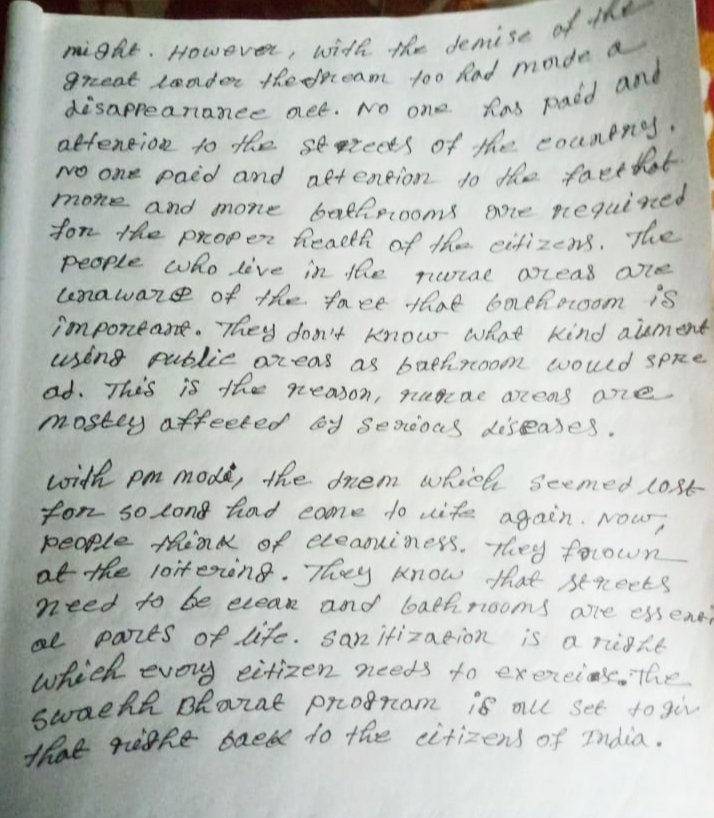 might. However, with the demise of the
great leader the dream too had made a
disappearance act. No one has paid and
attention to the streets of the country.
No one paid and attention to the fact that
more and more bathrooms are required
for the proper health of the citizens. The
people who live in the rural areas are
unaware of the fact that bathroom is
important. They don't know what kind aiment
using public areas as bathroom would spre
ad. This is the reason, rural areas are
mostly affected by serious diseases.
with pm modi, the drem which seemed lost
for so long had come to life again. Now,
people think of cleanliness. They frown
at the loitering. They know that streets
need to be clean and bathrooms are essenti
al parts of life. sanitization is a right
which every citizen needs to exercise. The
swachh Bharat program is all set to giv
that right back to the citizens of India.